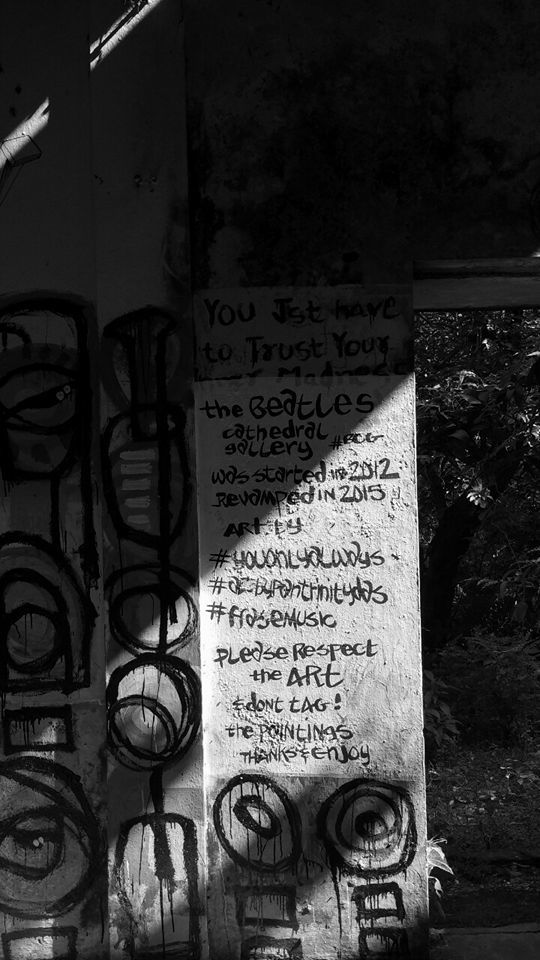 You Jst have
to Trust Your
Madness
the Beatles
cathedral
gallery #BCG
was started in 2012
Revamped in 2015
ART by
#youonlyalways
#artbypantrinitydas
#frasemusic
please Respect
the ART
& dont tAG!
the paintings
THANKS & enjoy